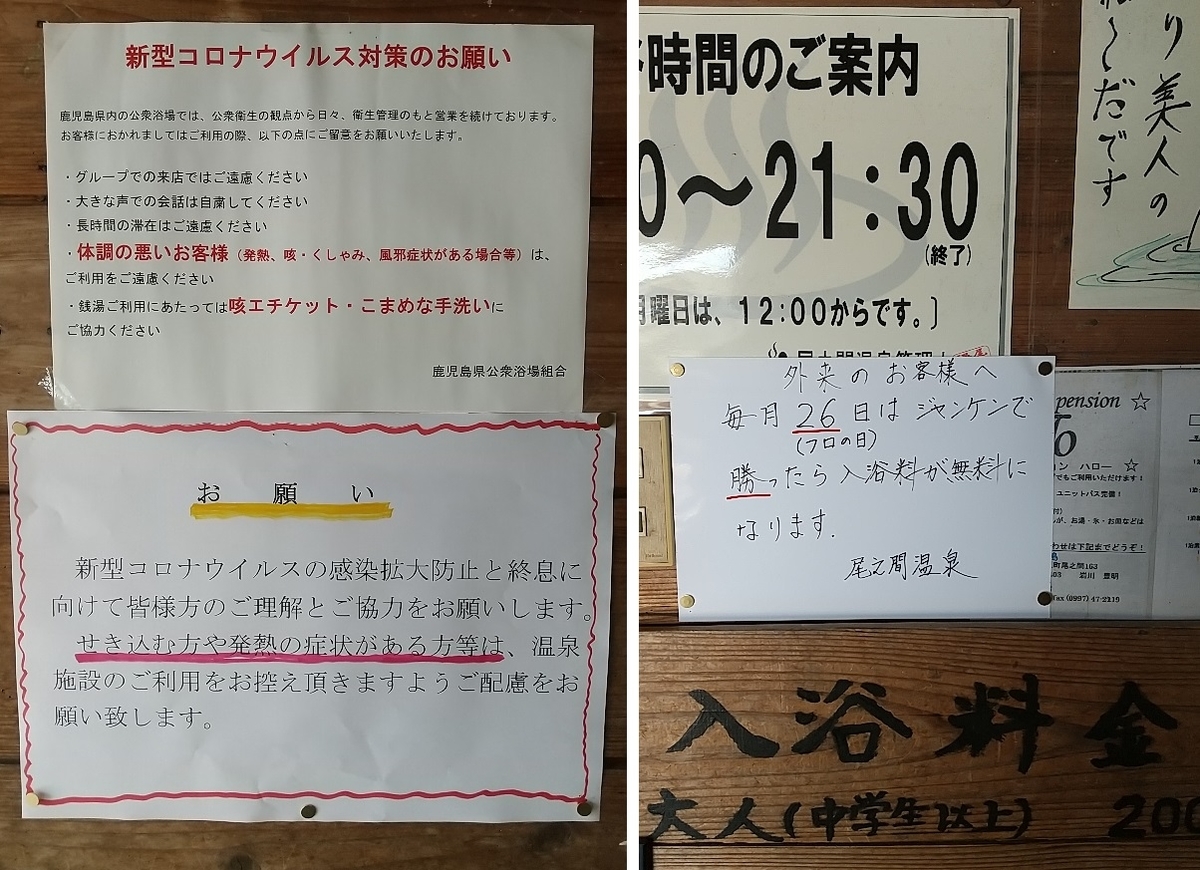 新型コロナウイルス対策のお願い
鹿児島県内の公衆浴場では、公衆衛生の観点から日々、衛生管理のもと営業を続けております。
お客様におかれましてはご利用の際、以下の点にご留意をお願いいたします。
・グループでの来店ではご遠慮ください
・大きな声での会話は自粛してください
・長時間の滞在はご遠慮ください
・体調の悪いお客様（発熱、咳・くしゃみ、風邪症状がある場合等）は、
ご利用をご遠慮ください
・銭湯ご利用にあたっては咳エチケット・こまめな手洗いに
ご協力ください
鹿児島県公衆浴場組合
お願い
新型コロナウイルスの感染拡大防止と終息に
向けて皆様方のご理解とご協力をお願いします。
せき込む方や発熱の症状がある方等は、温泉
施設のご利用をお控え頂きますようご配慮をお
願い致します。
時間のご案内
0～21:30
(終了)
月曜日は、12:00からです。〕
り美人の
だです
外来のお客様へ
毎月26日はジャンケンで
(フロの日)
勝ったら入浴料が無料に
なります.
尾之間温泉
pension ☆
ハロー ☆
でもご利用いただけます！
ユニットバス完備！
が、お湯・氷・お皿などは
わせは下記までどうぞ！
町尾之間163
岩川 豊明
Fax (0997) 47-2119
入浴料金
大人(中学生以上) 200